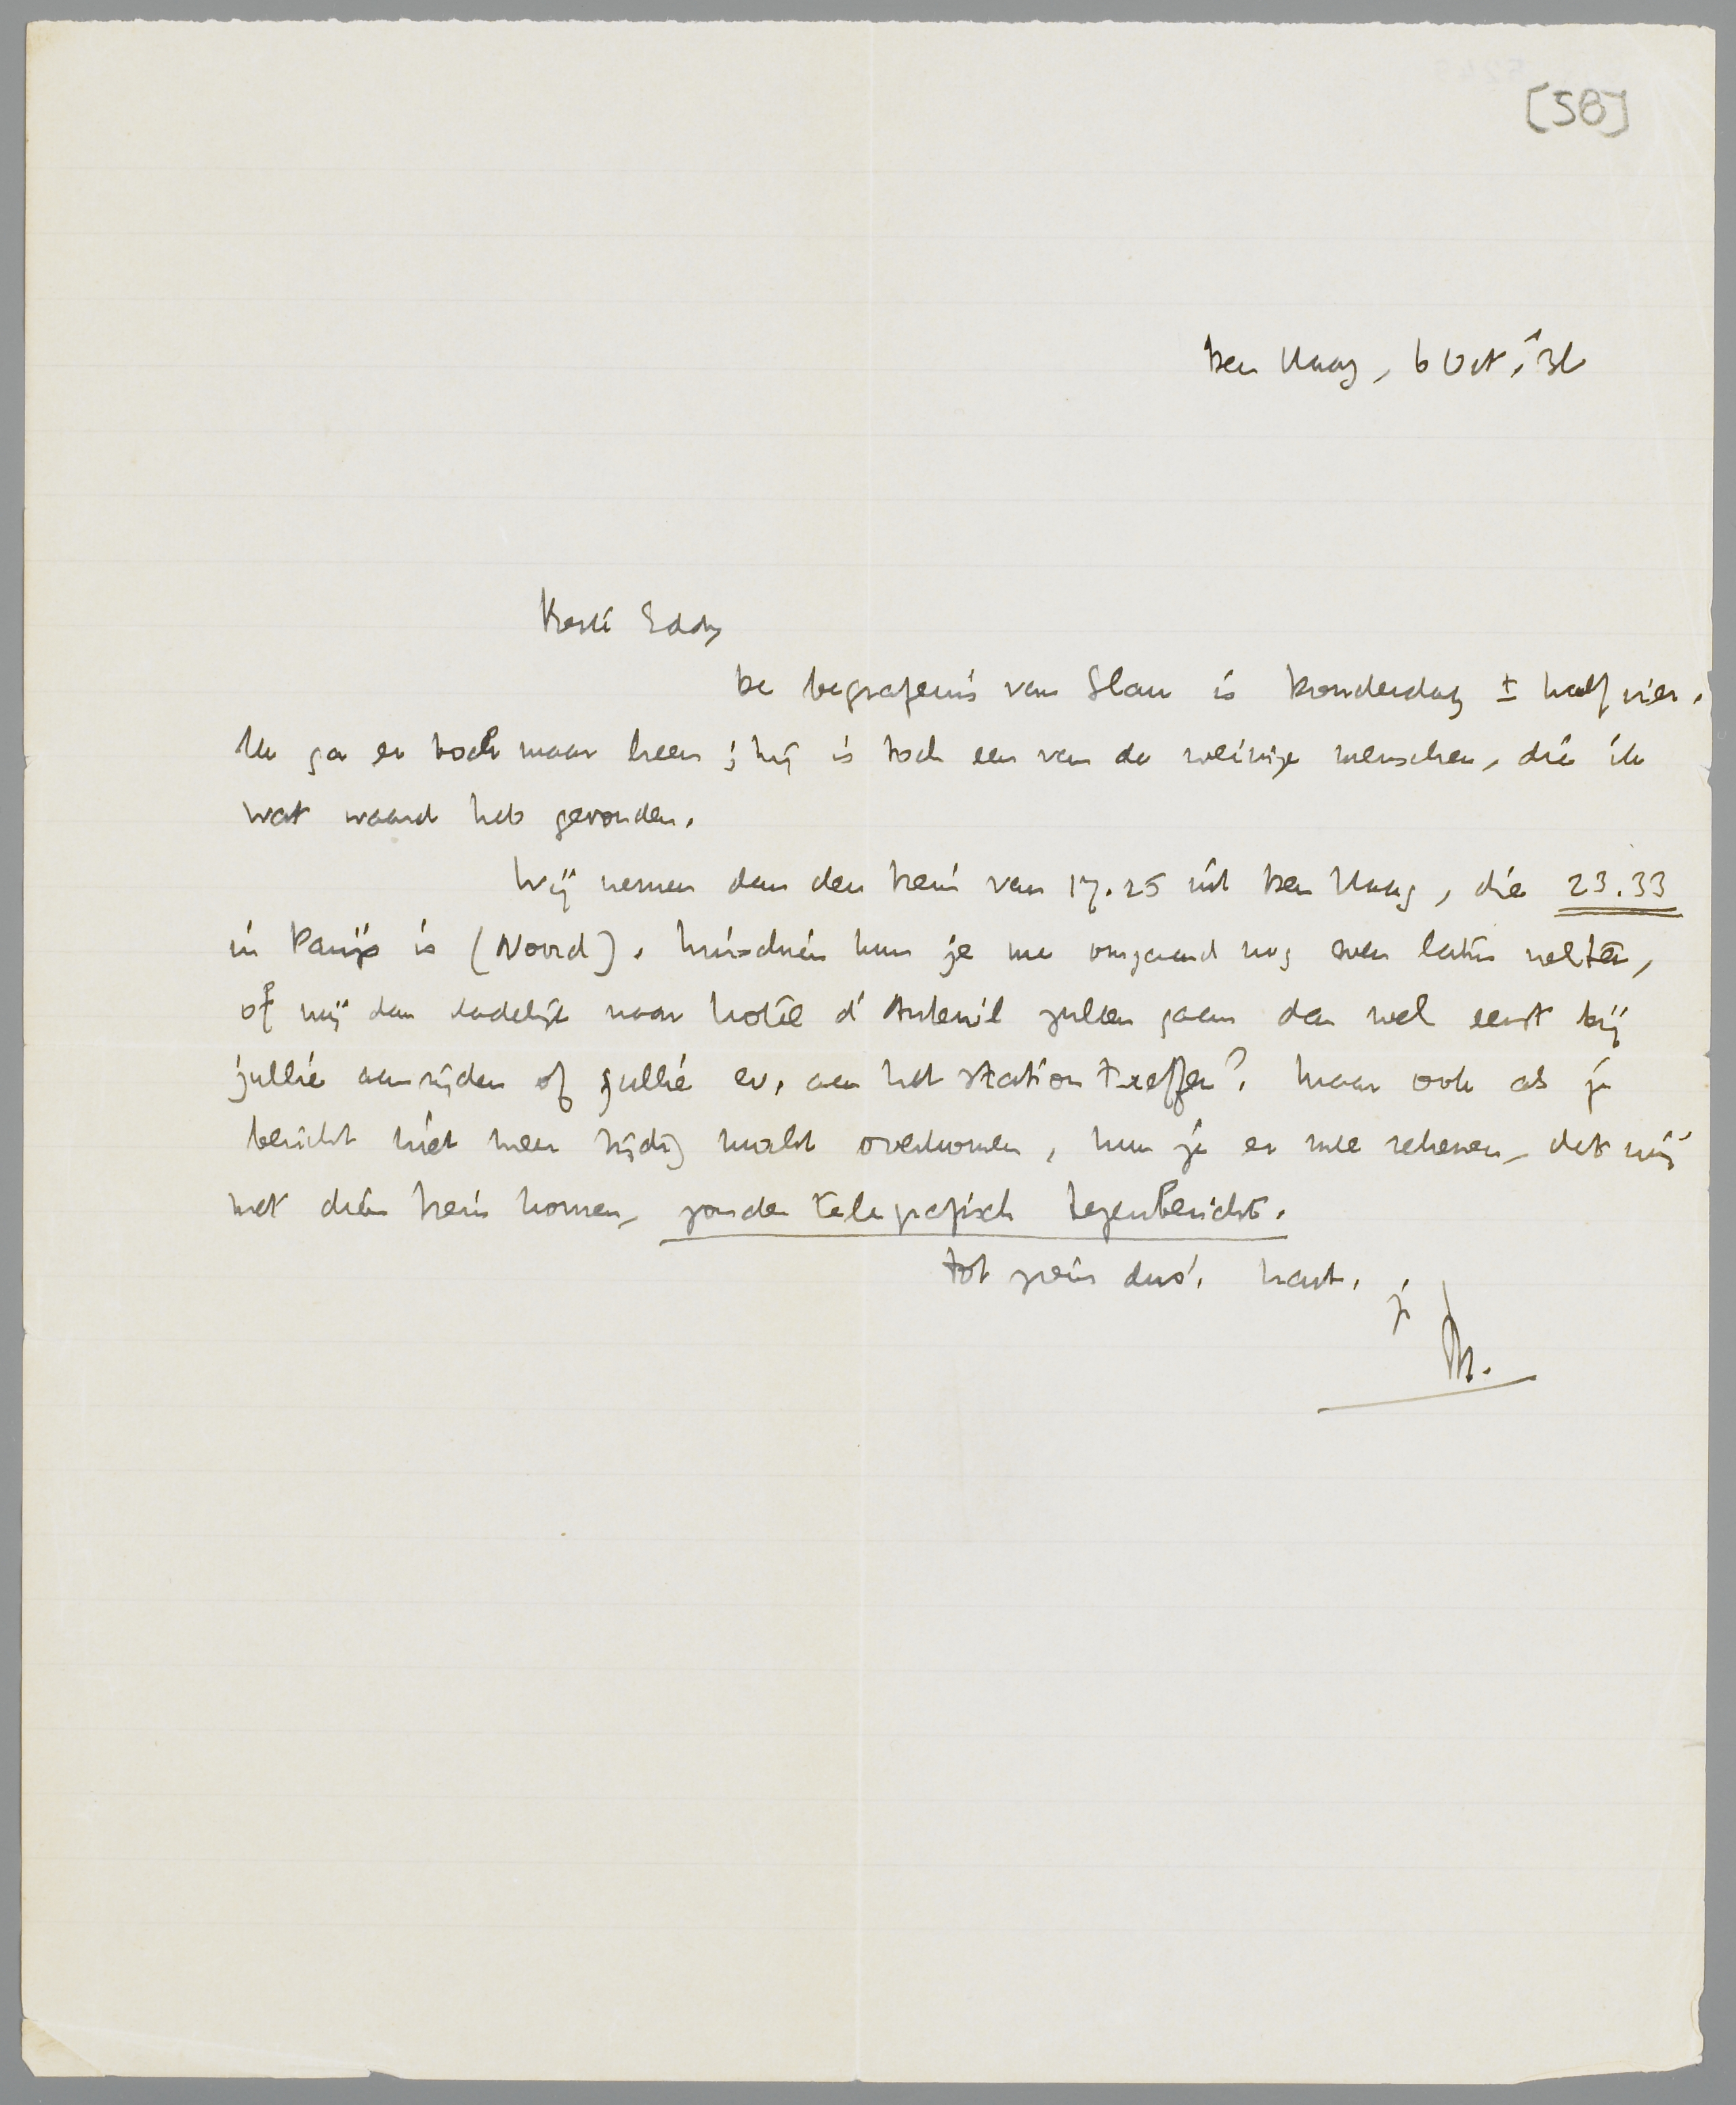 [58]
Den Haag, 6 Oct. '36
Beste Eddy
De begrafenis van Slau is Donderdag ± half vier.
Ik ga er toch maar heen; hij is toch een van de weinige menschen, die ik
wat waard heb gevonden.
Wij nemen dan den trein van 17.25 uit Den Haag, die 23.33
in Parijs is (Noord). Misschien kun je me omgaand nog even laten weten,
of wij dan dadelijk naar hotel d'Auteuil zullen gaan dan wel eerst bij
jullie aanrijden of jullie ev. aan het station treffen? Maar ook als je
bericht niet meer tijdig mocht overkomen, kun je er mee rekenen, dat wij
met dien trein komen, zonder telegrafisch tegenbericht.
tot ziens dus! hart. je
M.